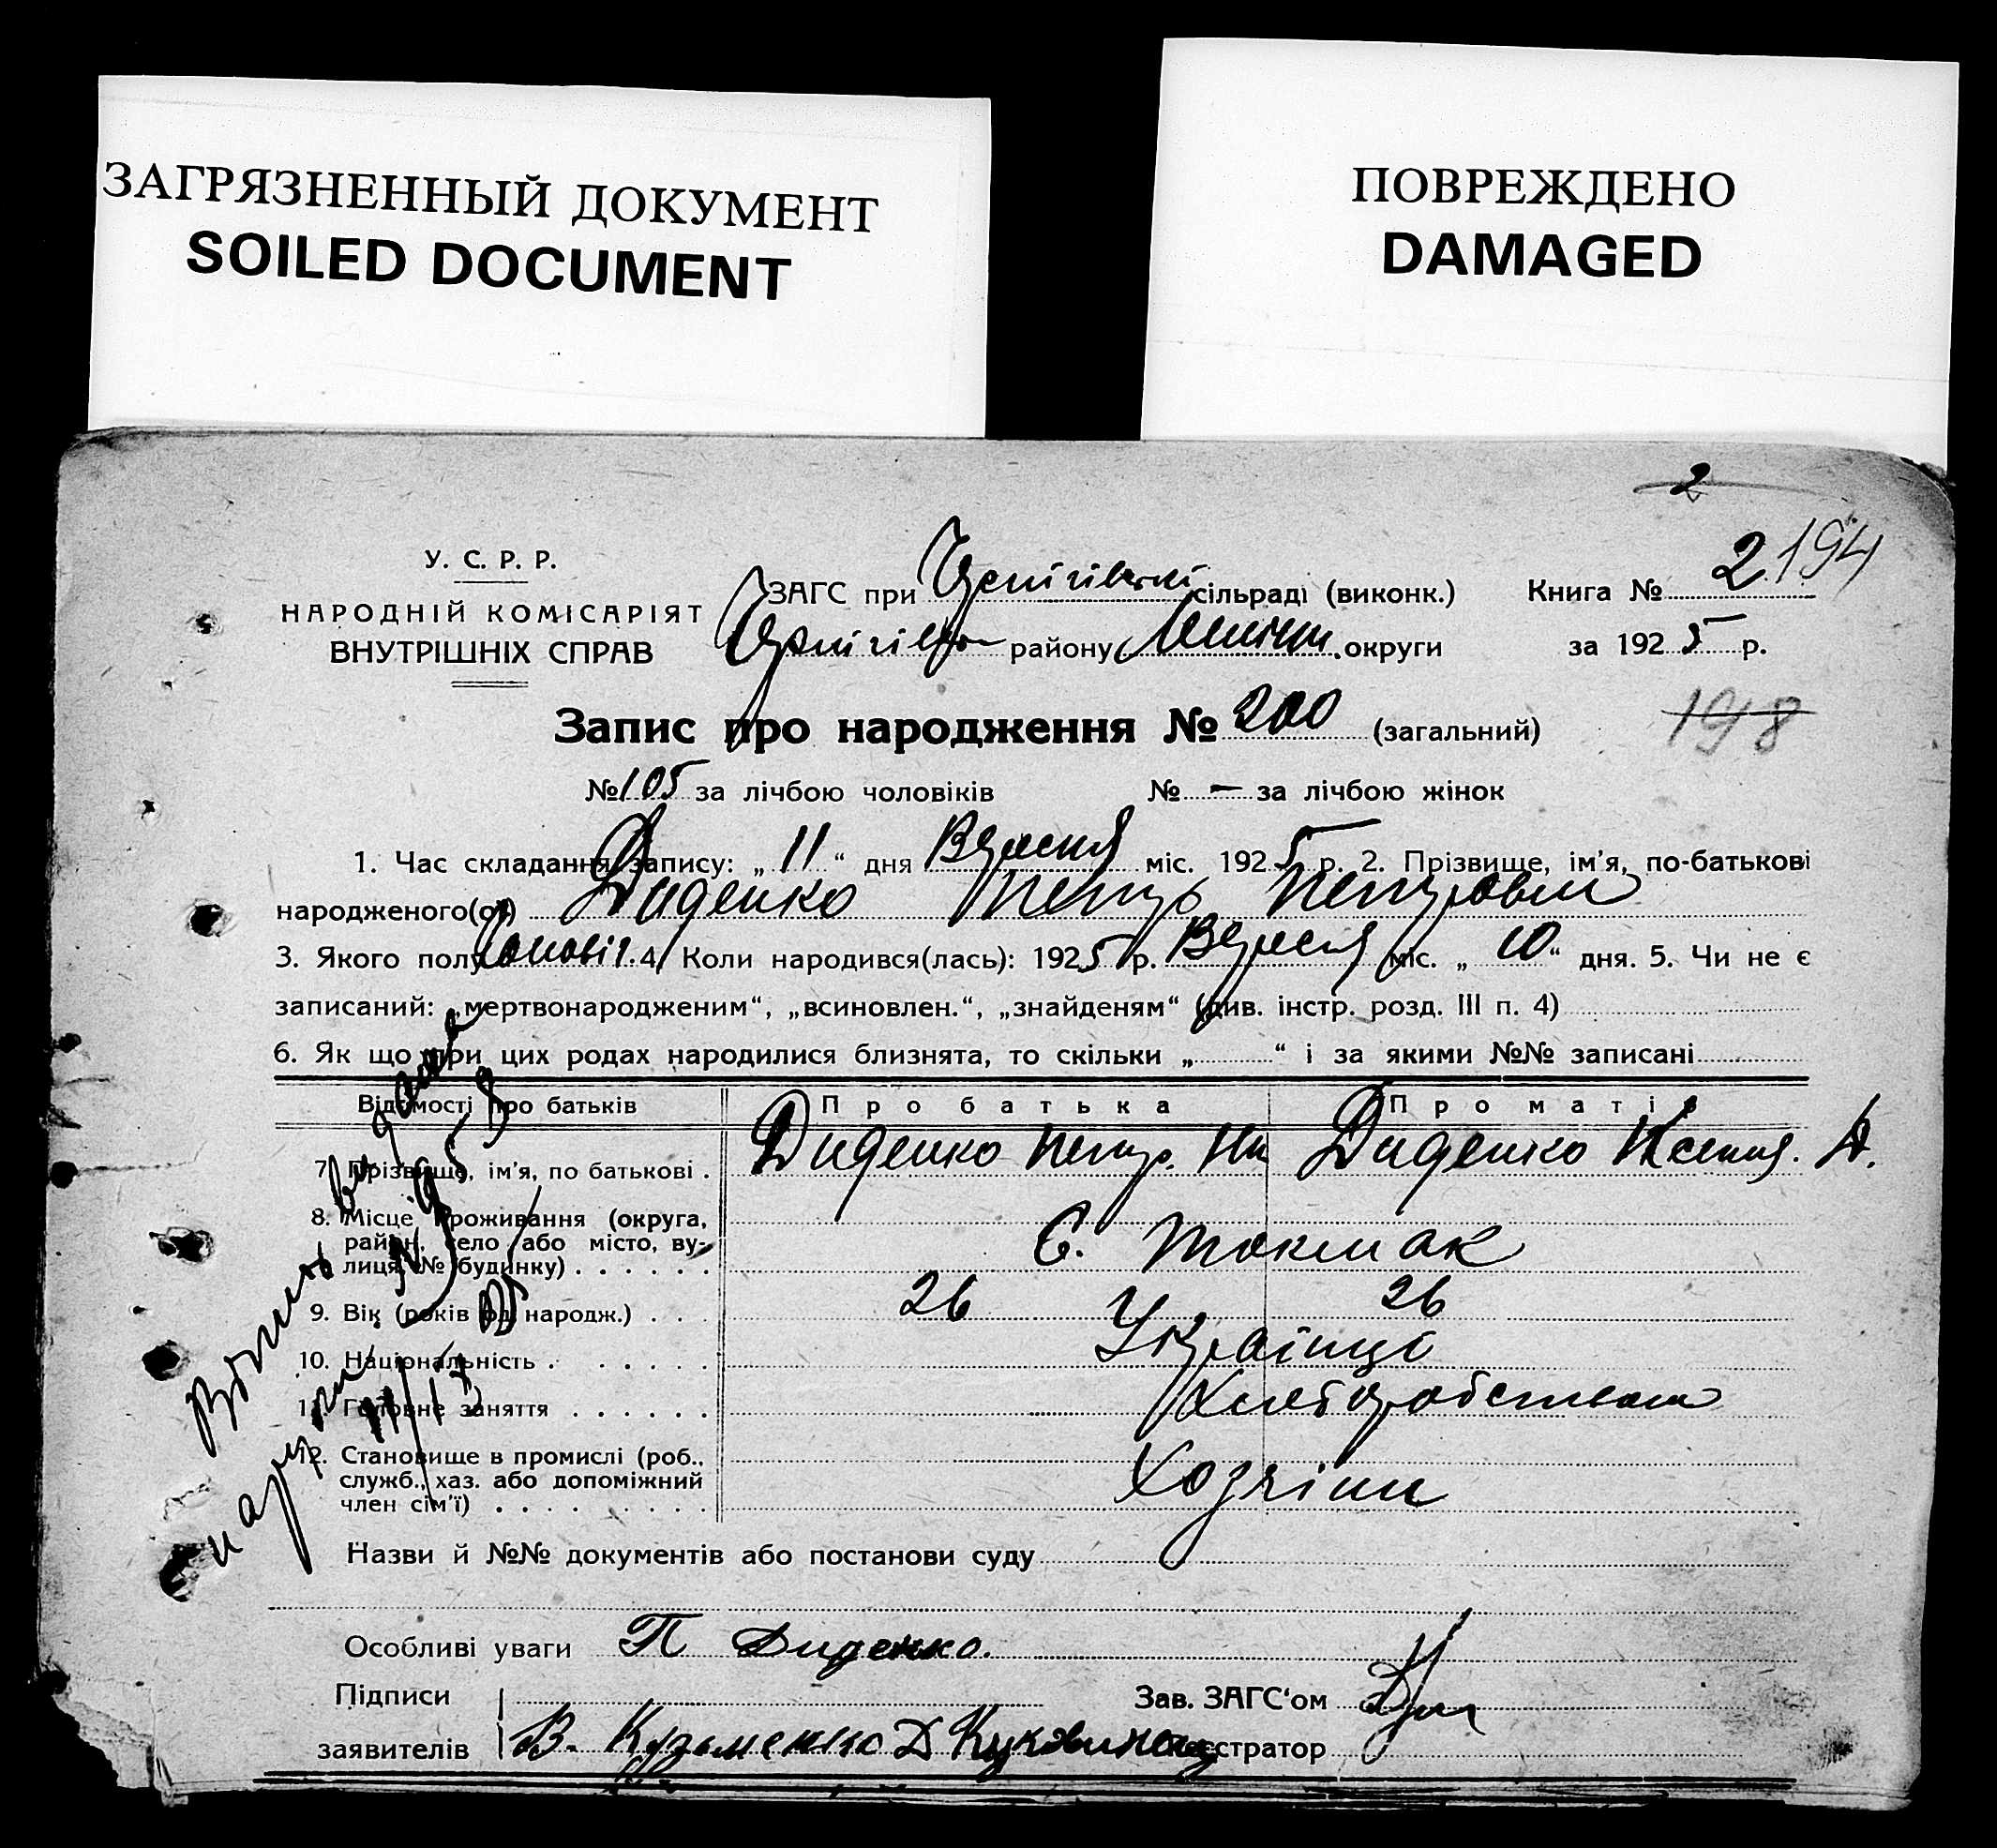 ЗАГРЯЗНЕННЫЙ ДОКУМЕНТ
SOILED DOCUMENT
ПОВРЕЖДЕНО
DAMAGED
2
У. С. Р. Р.
НАРОДНІЙ КОМІСАРІЯТ
ВНУТРІШНІХ СПРАВ
ЗАГС при сільраді (виконк.)
району округи
Книга № 2 194
за 1925 р.
Запис про народження № 200 (загальний)
198
№ 105 за лічбою чоловіків № — за лічбою жінок
1. Час складання запису: „ 11 “ дня Вересня міс. 1925 р. 2. Прізвище, ім'я, по-батькові
народженого(ої) Диденко Петро Петрович
3. Якого полу Чоловіч. 4. Коли народився(лась): 1925 р. Вересня міс. „ 10 “ дня. 5. Чи не є
записаний: „мертвонародженим“, „всиновлен.“, „знайденям“ (див. інстр. розд. III п. 4)
6. Як що при цих родах народилися близнята, то скільки „ “ і за якими №№ записані
Відомості про батьків Про батька Про матір
7. Прізвище, ім'я, по батькові . Диденко Петр. Диденко Ксения. А.
8. Місце проживання (округа,
район, село або місто, ву-
лиця, № будинку) . . . . . . С. Токмак
9. Вік (років од народж.) . . . 26 26
10. Національність . . . . . . Українці
11. Головне заняття . . . . . . Хлеборобством
12. Становище в промислі (роб.,
служб., хаз. або допоміжний
член сім'ї) . . . . . . . . . Хозяіни
Назви й №№ документів або постанови суду
Особливі уваги П Диденко.
Підписи Зав. ЗАГС‘ом
заявителів В. Кузьменко Д Реєстратор